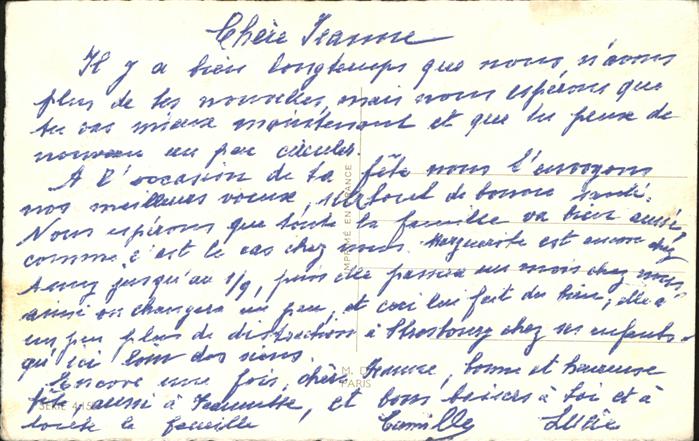 Chère Jeanne
Il y a bien longtemps que nous n'avons
plus de tes nouvelles, mais nous espérons que
tu vas mieux maintenant et que tu peux de
nouveau un peu circuler.
A l'occasion de ta fête nous t'envoyons
nos meilleurs voeux, surtout de bonne santé.
Nous espérons que toute ta famille va bien aussi,
comme c'est le cas chez nous. Marguerite est encore chez
jusqu'au 1/9, puis elle passera un mois chez nous,
ainsi on changera un peu, et ceci lui fait du bien, elle a
un peu plus de distraction à Strasbourg chez ses enfants
qu'ici loin des siens.
Encore une fois, chère Jeanne, bonne et heureuse
fête aussi à Jeannette, et bons baisers à toi et à
toute la famille Camille Lucie
IMPRIMÉ EN FRANCE
M. D.
PARIS
SÉRIE